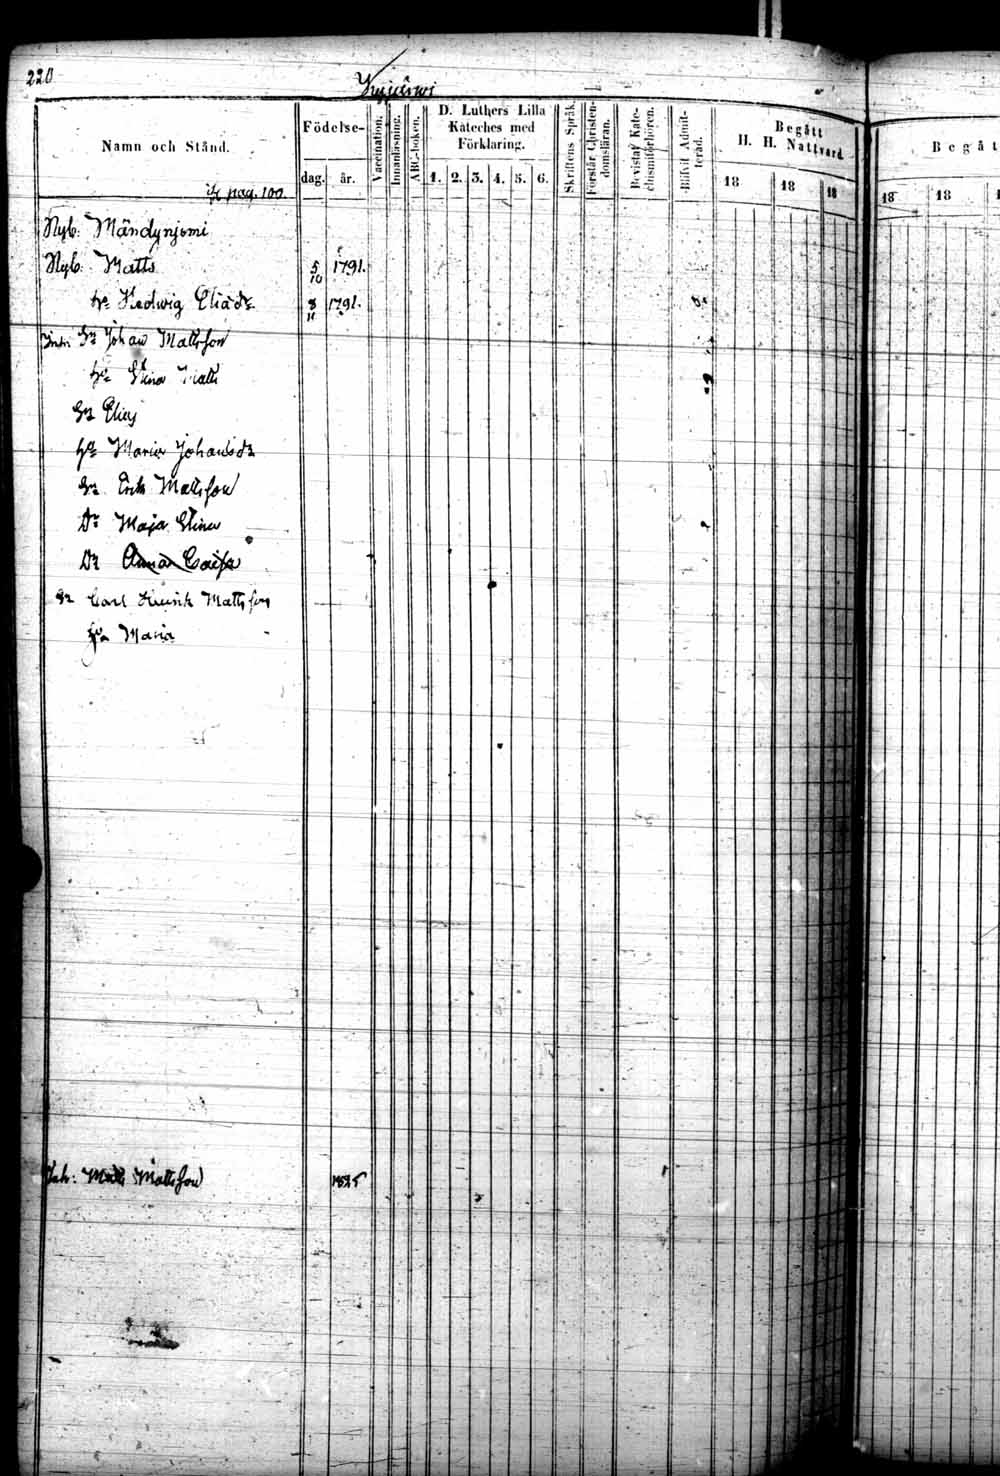 220
Namn och Stånd.
Födelse-
dag.
år.
Vaccination.
Innanläsning.
ABC-boken.
D. Luthers Lilla
Kateches med
Förklaring.
1. 2. 3. 4. 5. 6.
Skriftens Språk.
Förstår Christen-
domsläran.
Bevistat Kate-
chismiförhören.
Blifvit Admit-
terad.
Begått
H. H. Nattvard
18 18 18
Begåt
18 18
pag. 100.
Nyb: Mändynjemi
Nyb: Matts 5/10 1791.
Hu Hedwig Eliædr 8/11 1791.
Sn Johan Mattsson
Hu Stina Matts
Sn Elias
Hu Maria Johansdr
Sn Erik Mattsson
Dr Maja Stina
Dr Anna Caisa
Sn Carl Henrik Mattsson
Hu Maria
Matts Mattsson 1825